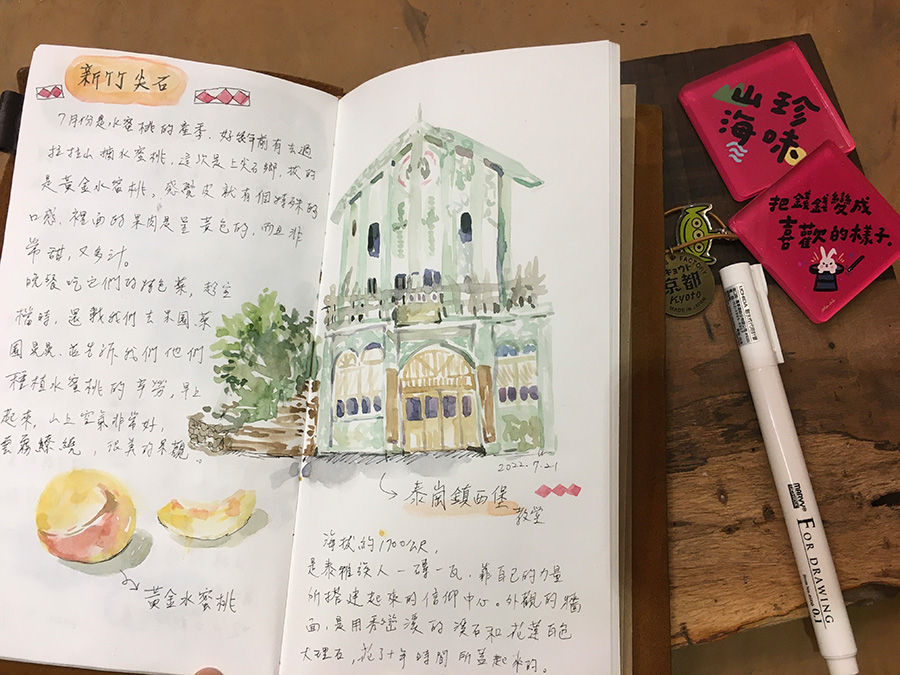 新竹尖石
7月份是水蜜桃的產季，好幾年前有去過
拉拉山摘水蜜桃，這次是上尖石鄉，拔的
是黃金水蜜桃，感覺皮就有個特殊的
口感，裡面的果肉是呈黃色的，而且非
常甜，又多汁。
晚餐吃它們的特色菜，趁空
檔時，還載我們去果園、菜
園晃晃，並告訴我們他們
種植水蜜桃的辛勞，早上
起來，山上空氣非常好，
雲霧繚繞，很美的景觀。
黃金水蜜桃
2022.7.21
泰崗鎮西堡
教堂
海拔約1700公尺，
是泰雅族人一磚一瓦，靠自己的力量
所搭建起來的信仰中心。外觀的牆
面，是用秀巒溪的溪石和花蓮白色
大理石，花了十年時間所蓋起來的。
山珍
海味
把錢錢變成
喜歡的樣子.
FACTORY
キョウト
京都
Kyoto
MADE IN JAPAN
UCHIDA
marvy
FOR DRAWING
0.1